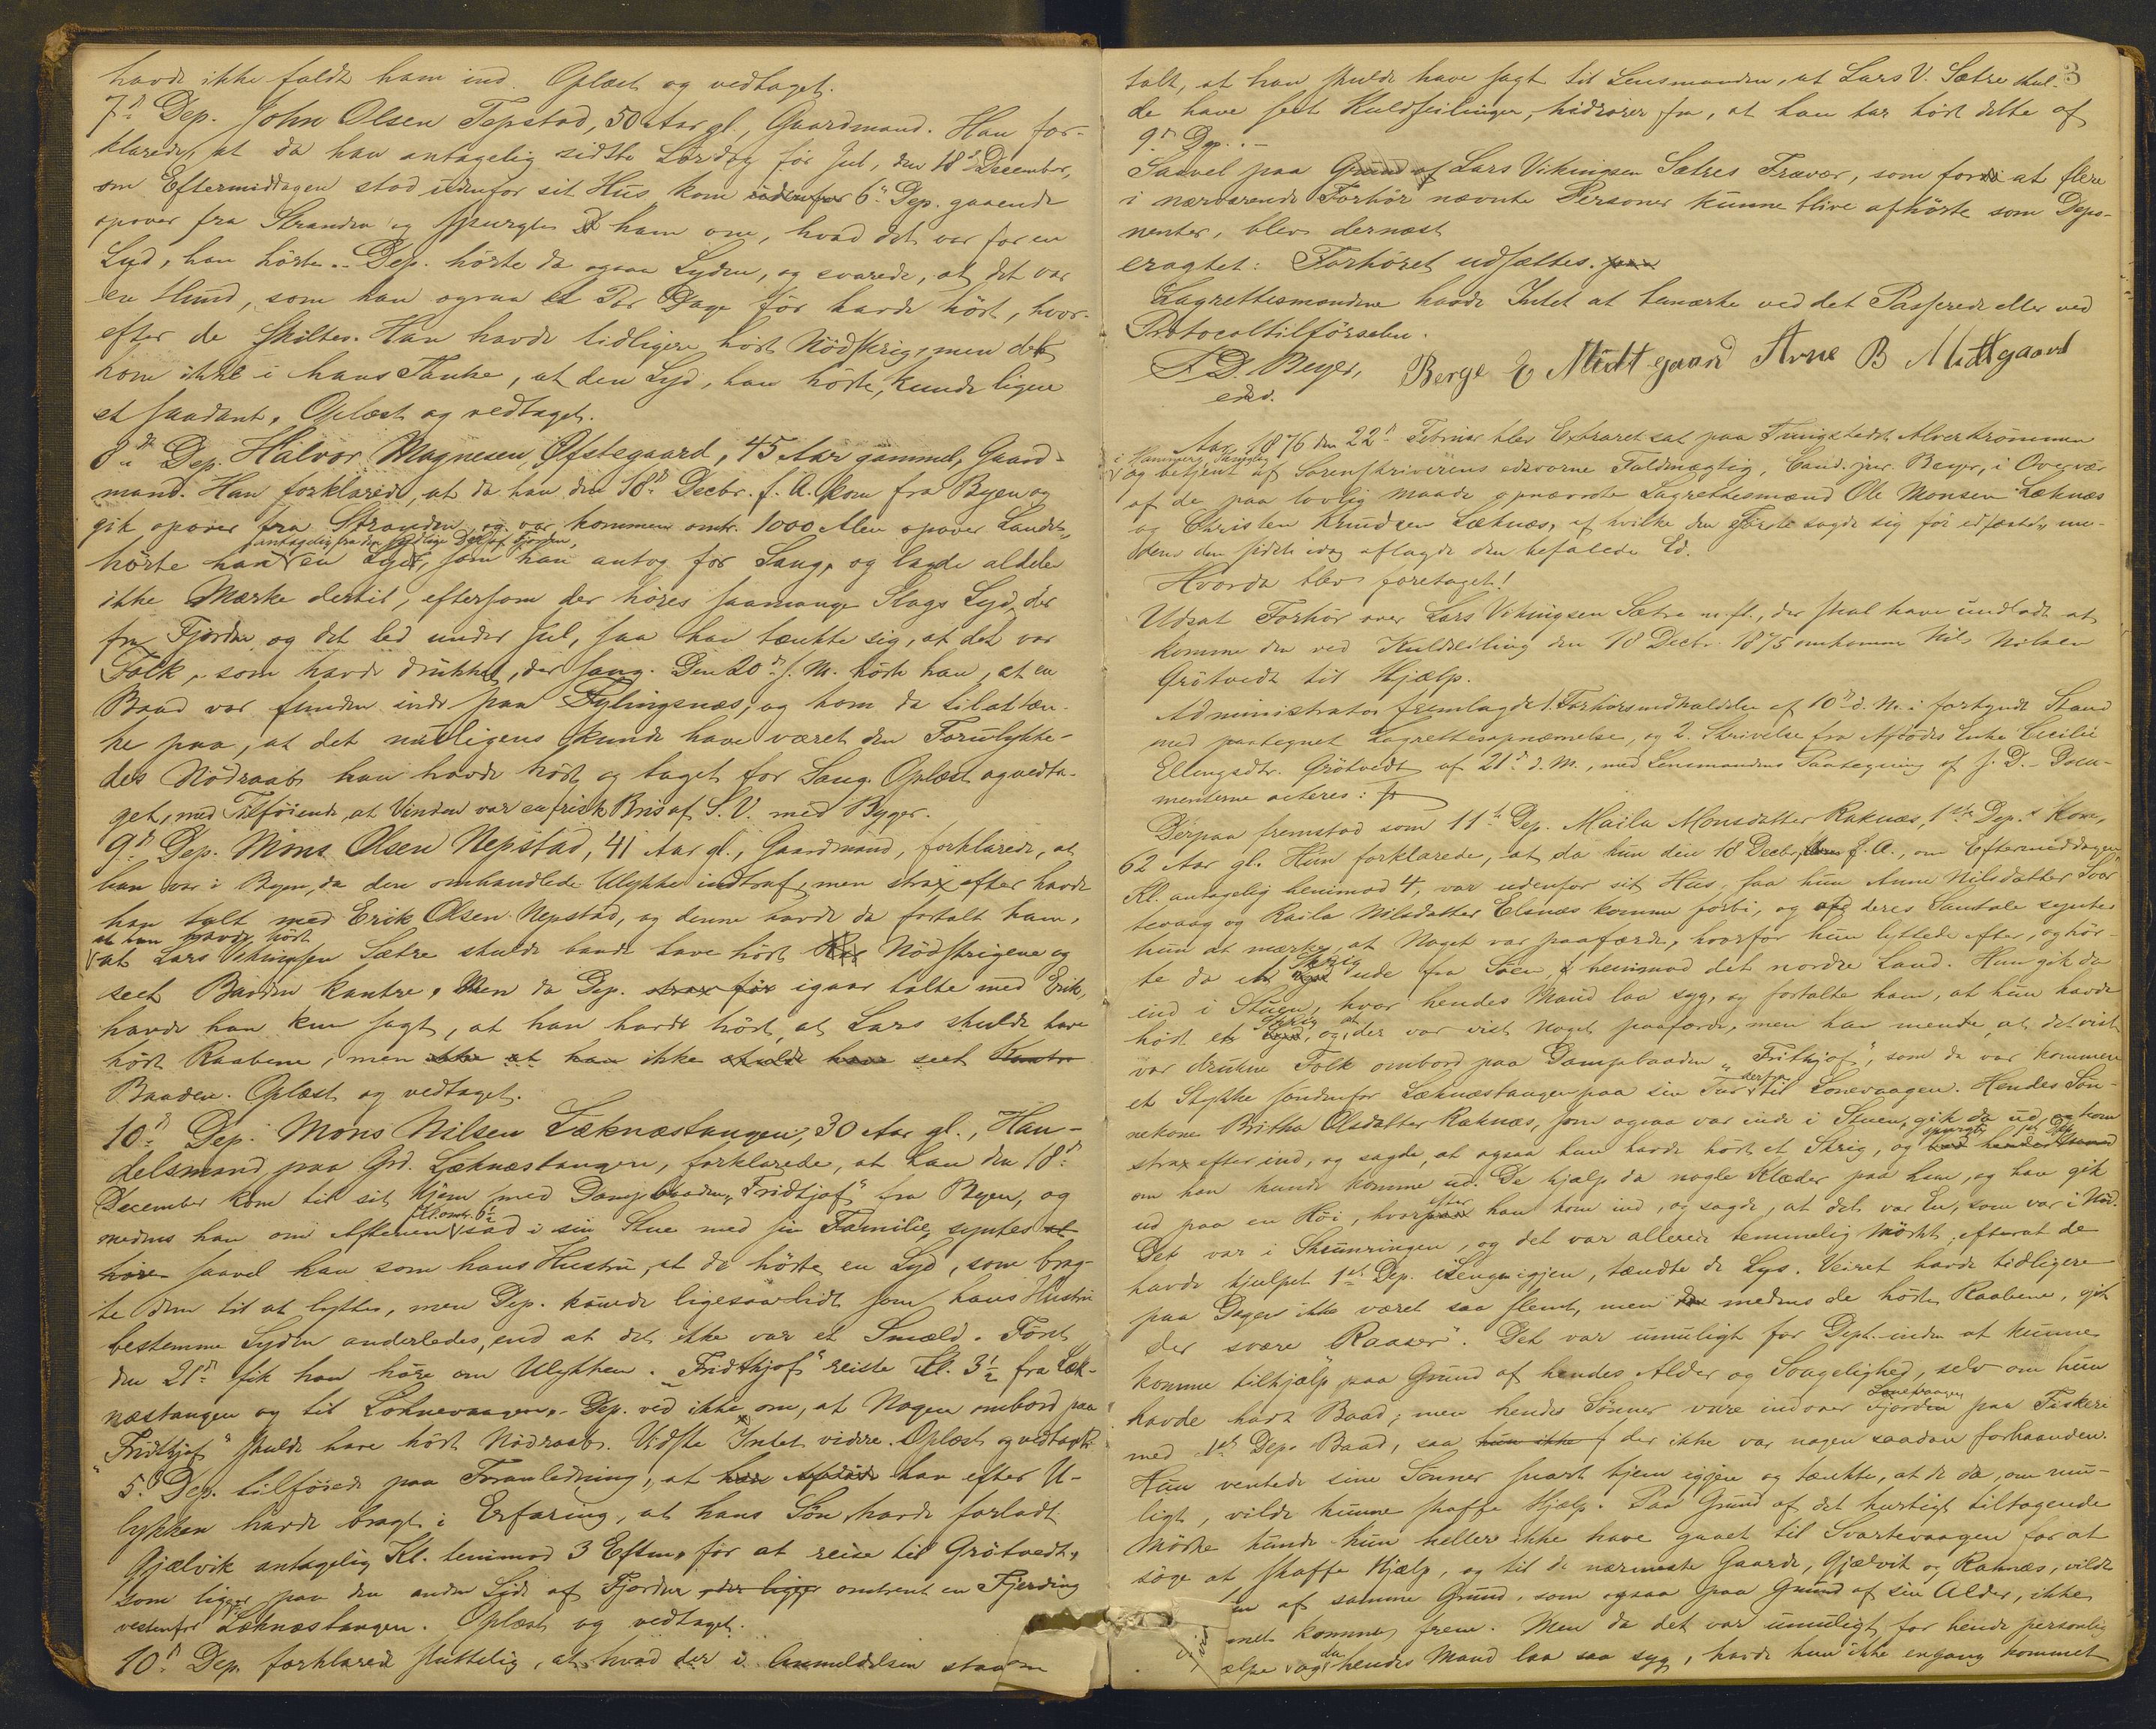 havde ikke faldt ham ind. Oplæst og vedtaget.
7de Dep. John Olsen Tepstad, 50 Aar gl., Gaardmand. Han for-
klarede, at da han antagelig sidste Lørdag før Jul, den 18de December,
om Eftermiddagen stod udenfor sit Hus, kom udenfor 6te Dep. gaaende
opover fra Stranden og spurgte ham om, hvad det var for en
Lyd, han hørte. Dep. hørte da ogsaa Lyden, og svarede, at det var
en Hund, som han ogsaa et Par Dage før havde hørt, hvor-
efter de skiltes. Han havde tidligere hørt Nødskrig, men det
kom ikke i hans Tanke, at den Lyd, han hørte, kunde ligne
et saadant. Oplæst og vedtaget.
8de Dep. Halvor Magnesen Øfstegaard, 45 Aar gammel, Gaard-
mand. Han forklarede, at da han den 18de Decbr. f. A. kom fra Byen og
gik opover fra Stranden og var kommen omtr. 1000 Alen opover Landet,
antagelig fra den sydlige Del af Fjorden,
hørte han en Lyd, som han antog for Sang, og lagde aldeles
ikke Mærke dertil, eftersom der høres saamange Slags Lyd der
fra Fjorden og det led under Jul, saa han tænkte sig, at det var
Folk, som havde drukket, der sang. Den 20de s. M. hørte han, at en
Baad var funden inde paa Fylingsnæs, og kom da til at tæn-
ke paa, at det muligens kunde have været den Forulykke-
des Nødraab han havde hørt og taget for Sang. Oplæst og vedta-
get, med Tilføiende, at Vinden var en frisk Bris af S.V. med Byger.
9de Dep. Mons Olsen Nepstad, 41 Aar gl., Gaardmand, forklarede, at
han var i Byen, da den omhandlede Ulykke indtraf, men strax efter havde
han talt med Erik Olsen Nepstad, og denne havde da fortalt ham,
at han havde hørt
at Lars Vikingsen Sætre skulde baade have hørt Nødskrigene og
seet Baaden kantre. Men da Dep. strax før igaar talte med Erik,
havde han kun sagt, at han havde hørt, at Lars skulde have
hørt Raabene, men ikke at han ikke skulde have seet Kantre
Baaden. Oplæst og vedtaget.
10de Dep. Mons Nilsen Læknæstangen, 30 Aar gl., Han-
delsmand paa Grd. Læknæstangen, forklarede, at han den 18de
December kom til sit Hjem med Dampbaaden "Fridthjof" fra Byen, og
Kl. omtr. 6½
medens han om Aftenen sad i sin Stue med sin Familie, syntes at
høre saavel han som hans Hustru, at de hørte en Lyd, som brag-
te dem til at lytte, men Dep. kunde ligesaalidt som hans Hustru
bestemme Lyden anderledes, end at det ikke var et Smæld. Først
den 21de fik han høre om Ulykken. "Fridthjof" reiste Kl. 3½ fra Læk-
næstangen og til Lohnevaagen. Dep. ved ikke om, at Nogen ombord paa
"Fridthjof" skulde have hørt Nødraab. Vidste Intet videre. Oplæst og vedtaget.
5te Dep. tilføiede paa Foranledning, at han efter U-
lykken havde bragt i Erfaring, at hans Søn havde forladt
Gjælvik antagelig Kl. henimod 3 Efterm. for at reise til Grøtvedt,
som ligger paa den anden Side af Fjorden der ligger omtrent en Fjerding
vestenfor Læknæstangen. Oplæst og vedtaget.
10de Dep. forklarede sluttelig, at hvad der i Anmeldelsen staar om
3
talt, at han skulde have sagt til Lensmanden, at Lars V. Sætre skul-
de have seet Kuldseilingen, hidrører fra, at han har hørt dette af
9de Dep. –
Saavel paa Grund af Lars Vikingsen Sætres Fravær, som fordi at flere
i nærværende Forhør nævnte Personer kunne blive afhørte som Depo-
nenter, blev dernæst
eragtet: Forhøret udsættes. paa
Lagrettesmændene havde Intet at bemærke ved det Passerede eller ved
Protocoltilførselen.
F. D. Beyer, Berge E Midtgaard Arne B Midtgaard
edsv.
Aar 1876 den 22de Februar blev Extraret sat paa Tingstedet Alverstrømmen
i Hammers Thinglag
og betjent af Sorenskriverens edsvorne Fuldmægtig, Cand. jur. Beyer, i Overvær
af de paa lovlig Maade opnævnte Lagrettesmænd Ole Monsen Læknæs
og Christen Knudsen Læknæs, af hvilke den Første sagde sig før edfæstet, me-
dens den sidste idag aflagde den befalede Ed.
Hvorda blev foretaget!
Udsat Forhør over Lars Vikingsen Sætre m. fl., der skal have undladt at
komme den ved Kuldseiling den 18 Decbr. 1875 omkomne Nils Nilsen
Grøtvedt til Hjælp.
Administrator fremlagde 1. Forhørsudholdelse af 10de d. M. i forkyndt Stand
med paategnet Lagrettesopnævnelse, og 2. Skrivelse fra Afdødes Enke Cecilie
Ellingsdtr. Grøtvedt af 21de d. M., med Lensmandens Paategning af s. D. – Docu-
menterne acteres:
Derpaa fremstod som 11te Dep. Maila Monsdatter Raknæs, 1ste Dep.s Kone,
62 Aar gl. Hun forklarede, at da hun den 18 Decbr. f. A., om Eftermiddagen
Kl. antagelig henimod 4, var udenfor sit Hus, saa hun Anne Nilsdatter Svar-
tevaag og Raila Nilsdatter Elsnæs komme forbi, og af deres Samtale syntes
hun at mærke, at Noget var paafærde, hvorfor hun lyttede efter, og hør-
Skrig
te da et ude fra Søen henimod det nordre Land. Hun gik da
ind i Stuen, hvor hendes Mand laa syg, og fortalte ham, at hun havde
Skrig at
hørt et, og der var vist Noget paafærde, men han mente, at det vist
var drukne Folk ombord paa Dampbaaden "Frithjof", som da var kommen
derfra
et Stykke søndenfor Læknæstangen paa sin Tur til Lonevaagen. Hendes Søn-
nekone Britha Olsdatter Raknæs, som ogsaa var inde i Stuen, gik da ud, og kom
spurgte
strax efter ind, og sagde, at ogsaa hun havde hørt et Skrig, og
om han kunde komme ud. De hjalp da nogle Klæder paa ham, og han gik
efter
ud paa en Høi, hvorpaa han kom ind, og sagde, at det var En, som var i Nød.
Det var i Skumringen, og det var allerede temmelig mørkt; efterat de
havde hjulpet 1ste Dep. i Seng igjen, tændte de Lys. Veiret havde tidligere
paa Dagen ikke været saa slemt, men medens de hørte Raabene, gik
der svære "Raaser". Det var umuligt for Dept.inden at kunne
komme tilhjælp paa Grund af hendes Alder og Svagelighed, selv om hun
Lonevaagen
havde havt Baad; men hendes Sønner vare indover Fjorden paa Fiskeri
med 1ste Dep.s Baad, saa hun ikke der ikke var nogen saadan forhaanden.
Hun ventede sine Sønner snart hjem igjen og tænkte, at de da, om mu-
ligt, vilde kunne skaffe Hjælp. Paa Grund af det hurtigt tiltagende
Mørke kunde hun heller ikke have gaaet til Svartevaagen for at
søge at skaffe Hjælp, og til de nærmeste Gaarde, Gjælvik og Raknæs, vilde
af samme Grund, som ogsaa paa Grund af sin Alder, ikke
kommet frem. Men da det var umuligt for hende personlig
da
og hendes Mand laa saa syg, havde hun ikke engang kommet